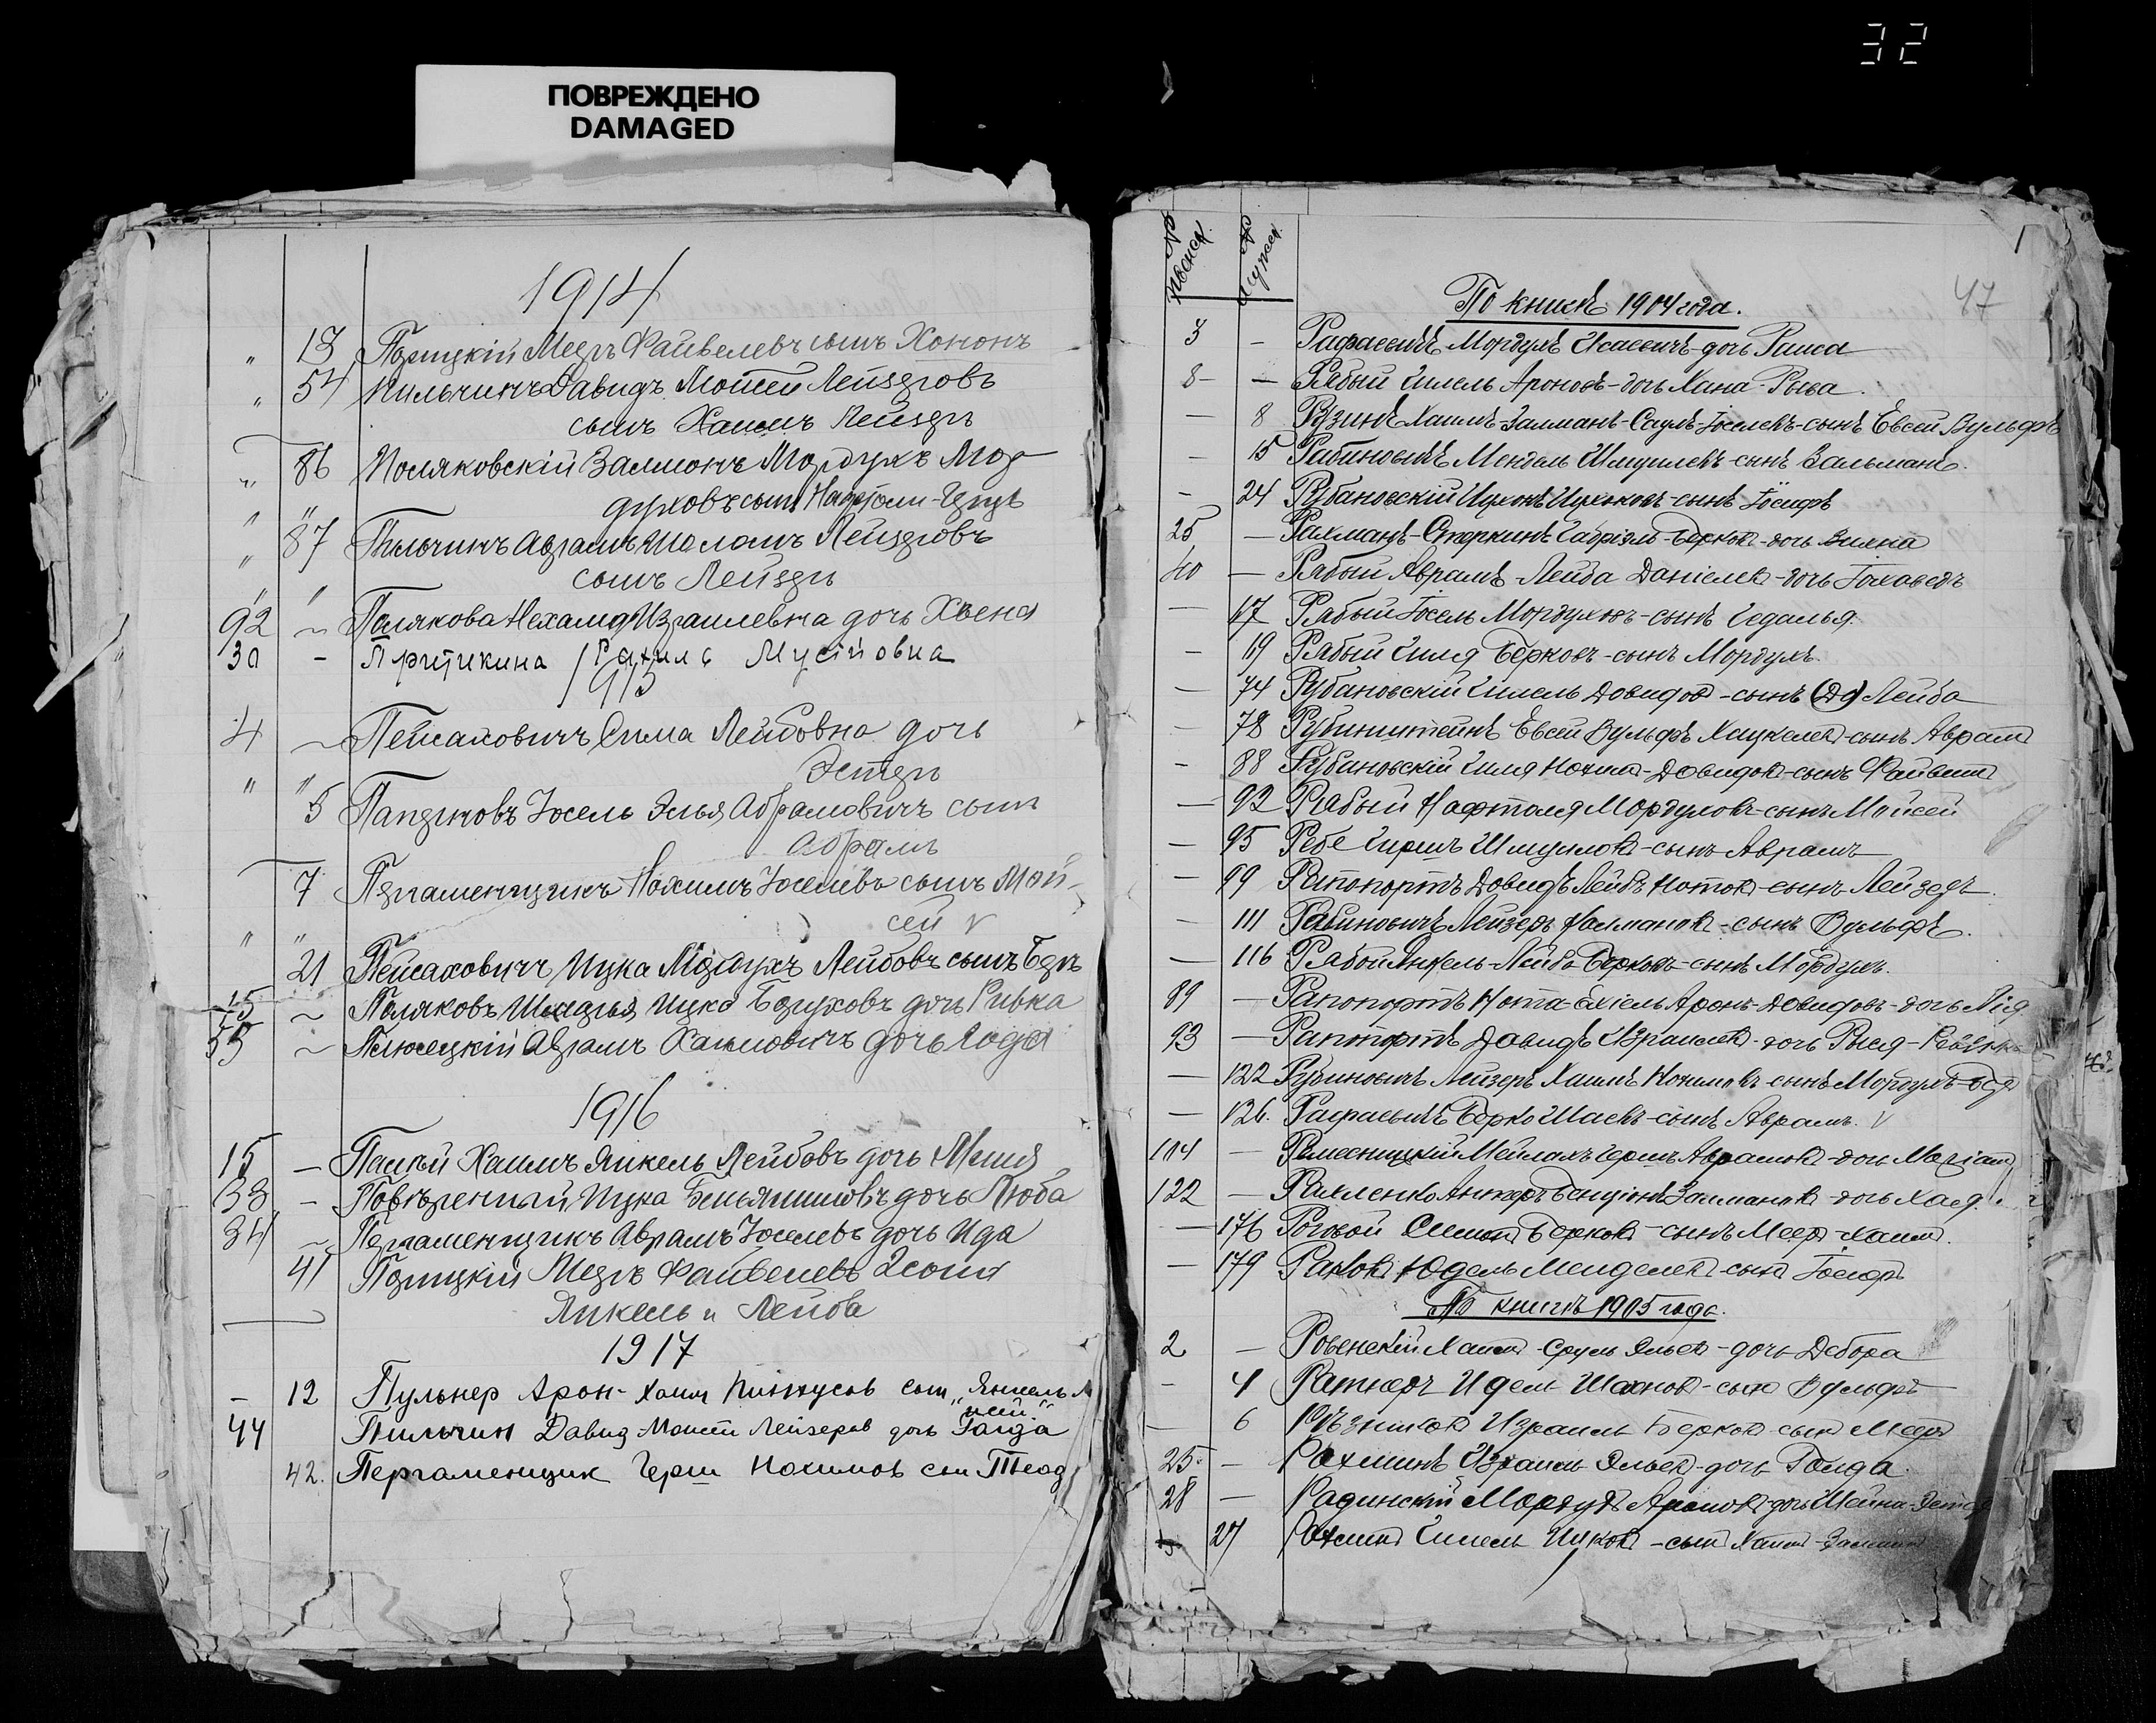 32
ПОВРЕЖДЕНО
DAMAGED
1914
" 18 Порицкій Меэръ Файвелевъ сынъ Хононъ
" 54 Пильчинъ Давидъ Мошей Лейзеровъ
сынъ Хаимъ Лейзеръ
" 86 Поляковскій Залмонъ Мордухъ Мор-
" " духовъ сынъ Нафтоли-Герцъ
" 87 Пильчинъ Аврамъ Шоломъ Лейзеровъ
сынъ Лейзеръ
92 Полякова Нехама Израилевна дочь Хвеня
30 - Притикина Рахиль
1915
4 Пейсаховичъ Сима Лейбовна дочь
" " Эстеръ
5 Йосель Элья Абрамовичъ сынъ
Абрамъ
7 Пергаменщикъ Нохимъ Йоселевъ сынъ Мой-
" " сей v
21 Пейсаховичъ Ицка Мордухъ Лейбовъ сынъ Беръ
15 Поляковъ Ицко Боруховъ дочь Ривка
55 Аврамъ Хаимовичъ дочь Года
1916
15 - Хаимъ Янкель Лейбовъ дочь Меня
33 - Повѣренный Ицка Беньяминовъ дочь Люба
34 Пергаменщикъ Аврамъ Йоселевъ дочь Ида
41 Порицкій Меэръ Файвелевъ
Янкель и Лейба
1917
- 12 Пульнер Арон-Хаим Пинхусов сын "Янкель
44 Пильчин Давид Моисей Лейзеров дочь Гольда
42. Пергаменщик Герш Нохимов сын
№ женск. № мужск. 1
По книгѣ 1904 года. 47
3 - Рафаевичъ Мордухъ Исаевичъ-дочь Раиса
8 - - Рябый Гилель Ароновъ-дочь Хана-Рыва.
- 8 Рузинъ Хаимъ Залманъ-Сруль-Іоселевъ-сынъ Евсей Вульфъ
- 15 Рабиновичъ Мендель Шмуилевъ-сынъ Зальманъ.
- 24 Рубановскій сынъ Іосифъ
25 - Рахманъ- Габріэль-Берковъ-дочь
40 - Рябый Аврамъ-Лейба Даніелевъ-дочь Іоховедъ
- 47 Рябый Іосель Мордуховъ-сынъ Гедалья.
- 49 Рябый Гиля Берковъ-сынъ Мордухъ.
- 74 Рубановскій Гилель Довидовъ-сынъ (До) Лейба
- 78 Рубинштейнъ Евсей Вульфъ Хацкелевъ-сынъ Аврамъ
- 88 Рубановскій Гиля Нохим-Довидовъ-сынъ Файвишъ
- 92 Рябый Нафтоля Мордуховъ-сынъ Мойсей
- 95 Ребе Гиршъ Шмуиловъ-сынъ Аврамъ
- 99 Рапопортъ Довидъ Лейбъ Нотовъ-сынъ Лейзеръ.
- 111 Рабиновичъ Лейзеръ Калмановъ-сынъ Вульфъ.
- 116 Рабой Янкель-Лейба Берковъ-сынъ Мордухъ.
89 - Рапопортъ Нота-Ехіель Аронъ-Довидовъ-дочь Лія
93 - Рапопортъ Давидъ Израилевъ-дочь Рыся-
- 122 Рубиновичъ Лейзеръ Хаимъ Нохимовъ-сынъ Мордухъ-Беръ
- 126. Рафаевичъ Берко Шаевъ-сынъ Аврамъ. v
104 - Ремесницкій Мейлахъ Гершъ Абрамовъ-дочь Маріамъ
122 - Рахленко Бенціонъ Залмановъ-дочь Хая.
- 176 Роговой Берковъ-сынъ Меер-Хаимъ.
- 179 Раковъ Юдель Менделевъ-сынъ Іосифъ
По книгѣ 1905 года.
2 - Ровенскій Хаимъ-Сруль Эльевъ-дочь Дебора
- 4 Ратнеръ Идель Шахновъ-сынъ Вульфъ
- 6 Рѣзниковъ Израиль Берковъ-сынъ Мееръ
25 - Рахлинъ Израиль Эльевъ-дочь Голда
28 - Радинскій Мордухъ Ароновъ-дочь Шейна-Эстеръ
27 Гилель Ицковъ-сынъ Хаимъ-Залманъ